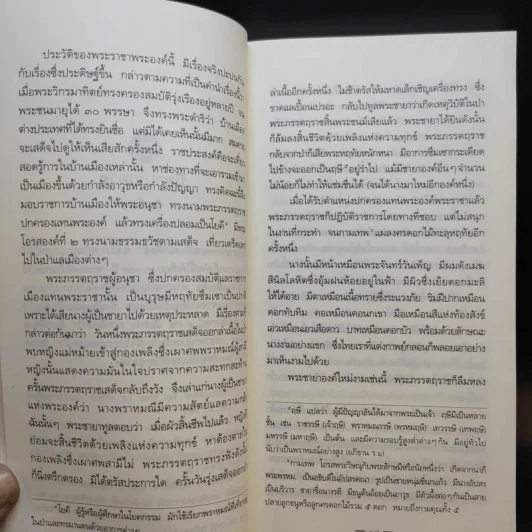 ประวัติของพระราชาพระองค์นี้ มีเรื่องจริงปะปนกัน
กับเรื่องซึ่งประดิษฐ์ขึ้น กล่าวตามความที่เป็นคำนำเรื่องนี้ว่า
เมื่อพระวิกรมาทิตย์ทรงครองสมบัติรุ่งเรืองอยู่หลายปี จน
พระชนมายุได้ ๓๐ พรรษา จึงทรงพระดำริว่า บ้านเมือง
ต่างประเทศที่ได้ทรงยินชื่อ แต่มิได้เคยเห็นนั้นมีมาก
จะเสด็จไปดูให้เห็นเสียสักครั้งหนึ่ง ราชประสงค์คือจะเที่ยว
สอดรู้การในบ้านเมืองเหล่านั้น หาช่องทางที่จะเอารวมเข้ามา
เป็นเมืองขึ้นด้วยกำลังอาวุธหรือกำลังปัญญา ทรงคิดฉะนี้จึง
มอบราชการบ้านเมืองให้พระอนุชา ทรงนามพระภรรตฤราช
ปกครองแทนพระองค์ แล้วทรงเครื่องปลอมเป็นโยคี* มีพระ
โอรสองค์ที่ ๒ ทรงนามธรรมธวัชตามเสด็จ เที่ยวเตร็ดเตร่
ไปในป่าแลเมืองต่างๆ
พระภรรตฤราชผู้อนุชา ซึ่งปกครองสมบัติแลราชการ
เมืองแทนพระราชานั้น เป็นบุรุษมีหทัยซึมเซาเป็นปกติ
เพราะได้เสียนางผู้เป็นชายาไปด้วยเหตุประหลาด มีเรื่องตาม
กล่าวต่อกันมาว่า วันหนึ่งพระภรรตฤราชเสด็จออกล่าเนื้อใน
พบหญิงแม่หม้ายเข้าสู่กองเพลิงซึ่งเผาศพพราหมณ์ผู้สามี
หญิงนั้นแสดงความมั่นในใจปราศจากความสะทกสะท้าน
ครั้นพระภรรตฤราชเสด็จกลับถึงวัง จึงเล่าแก่นางผู้เป็นชายา
แห่งพระองค์ว่า นางพราหมณีมีความสัตย์แลความกล้า
ฉันนั้นๆ พระชายาทูลตอบว่า เมื่อผัวสิ้นชีพไปแล้ว หญิงดี
ย่อมจะสิ้นชีวิตด้วยเพลิงแห่งความทุกข์ หาต้องตายใน
กองเพลิงซึ่งเผาศพสามีไม่ พระภรรตฤราชทรงฟังดังนั้น
ก็นิ่งตรึกตรอง มิได้ตรัสประการใด ครั้นวันรุ่งเสด็จออก
*โยคี ผู้รู้หรือผู้ศึกษาในโยคกรรม มักใช้เรียกพราหมณ์ที่เที่ยว
ในป่าและทรมานตนด้วยอาการต่างๆ
ล่าเนื้ออีกครั้งหนึ่ง ไม่ช้าตรัสให้มหาดเล็กเชิญเครื่องทรง ซึ่ง
ขาดแลเปื้อนเปรอะ กลับไปทูลพระชายาว่าเกิดเหตุวิบัติในป่า
พระภรรตฤราชสิ้นพระชนม์เสียแล้ว พระชายาได้ยินดังนั้น
ก็ล้มลงสิ้นชีวิตด้วยเพลิงแห่งความทุกข์ พระภรรตฤราช
กลับจากป่าก็เสียพระหฤทัยหนักหนา มีอาการซึมเซากระเดียด
ไปข้างจะออกเป็นฤษี*อยู่ร่ำไป แม้มีชายาองค์อื่นๆ จำนวน
ไม่น้อยก็ไม่ทำให้แช่มชื่นได้ (จนได้นางมาใหม่อีกองค์หนึ่ง)
เมื่อได้รับตำแหน่งปกครองแทนพระองค์พระราชาแล้ว
พระภรรตฤราชก็ปฏิบัติราชการโดยทางที่ชอบ แต่ไม่สนุก
ในงานที่กระทำ จนกามเทพ*แผลงศรดอกไม้ทะลุหฤทัยอีก
ครั้งหนึ่ง
นางนั้นมีหน้าเหมือนพระจันทร์วันเพ็ญ มีผมดังเมฆ
สีนิลโลหิตซึ่งอุ้มฝนห้อยอยู่ในฟ้า มีผิวซึ่งเย้ยดอกมะลิ
ให้ได้อาย มีตาเหมือนเนื้อทรายซึ่งระแวงภัย ริมฝีปากเหมือน
ดอกทับทิม คอเหมือนคอนกเขา มือเหมือนสีแห่งท้องสังข์
เอวเหมือนเอวเสือดาว บาทเหมือนดอกบัว พร้อมด้วยลักษณะ
นางงามอย่างแขก ซึ่งไทยเราที่แต่งกาพย์กลอนก็พลอยเอาอย่าง
มาเห็นงามไปด้วย
พระชายาองค์ใหม่งามเช่นนี้ พระภรรตฤราชก็ลืมหลง
*ฤษี แปลว่า ผู้มีปัญญาอันได้มาจากพระเป็นเจ้า ฤษีมีเป็นหลาย
ชั้น เช่น ราชรรษิ (เจ้าฤษี) พราหมณรรษิ (พรหมฤษี) เทวรรษิ (เทพฤษี)
มหรรษิ (มหาฤษี) เป็นต้น และมีความรอบรู้สูงต่ำต่างๆ กัน มีอยู่ทั่วไป
นับว่าเป็นพราหมณ์อย่างสูง (อภิธาน ร.บ)
*กามเทพ โอรสพระวิษณุกับพระลักษมีหรือนัยหนึ่งว่า เกิดจากนาภี
พระพรหม เป็นขัยมีในอัปสรคณา รูปเป็นชายหนุ่มขี่นกแก้ว มีนางอัปสร
เป็นบริวาร ชายาชื่อนางรตี มีธนูคันอ้อยเป็นอาวุธ มีตัวผึ้งต่อๆกันเป็นสาย
ปลายลูกธนูหรือลูกศรดอกไม้รวม ๕ ดอก หมายถึงกามทั้ง ๕